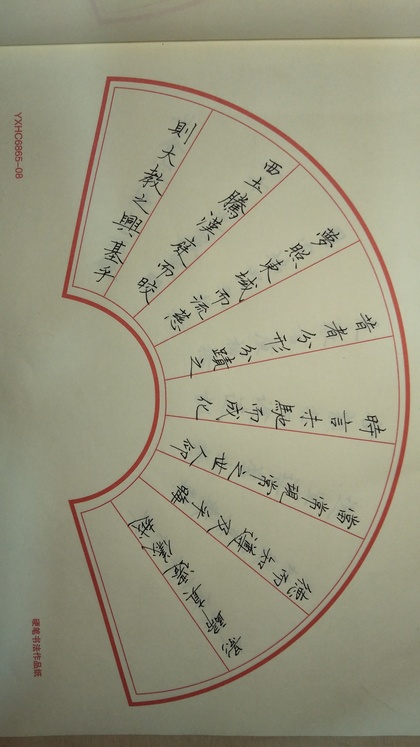 則大教之興基乎
西土騰漢庭而皎
夢照東域而流慈
昔者分形分蹟之
時言未馳而成化
當常現常之世人仰
德而知遵及乎晦
影歸真遷儀越
YXHC6865-08
硬笔书法作品纸